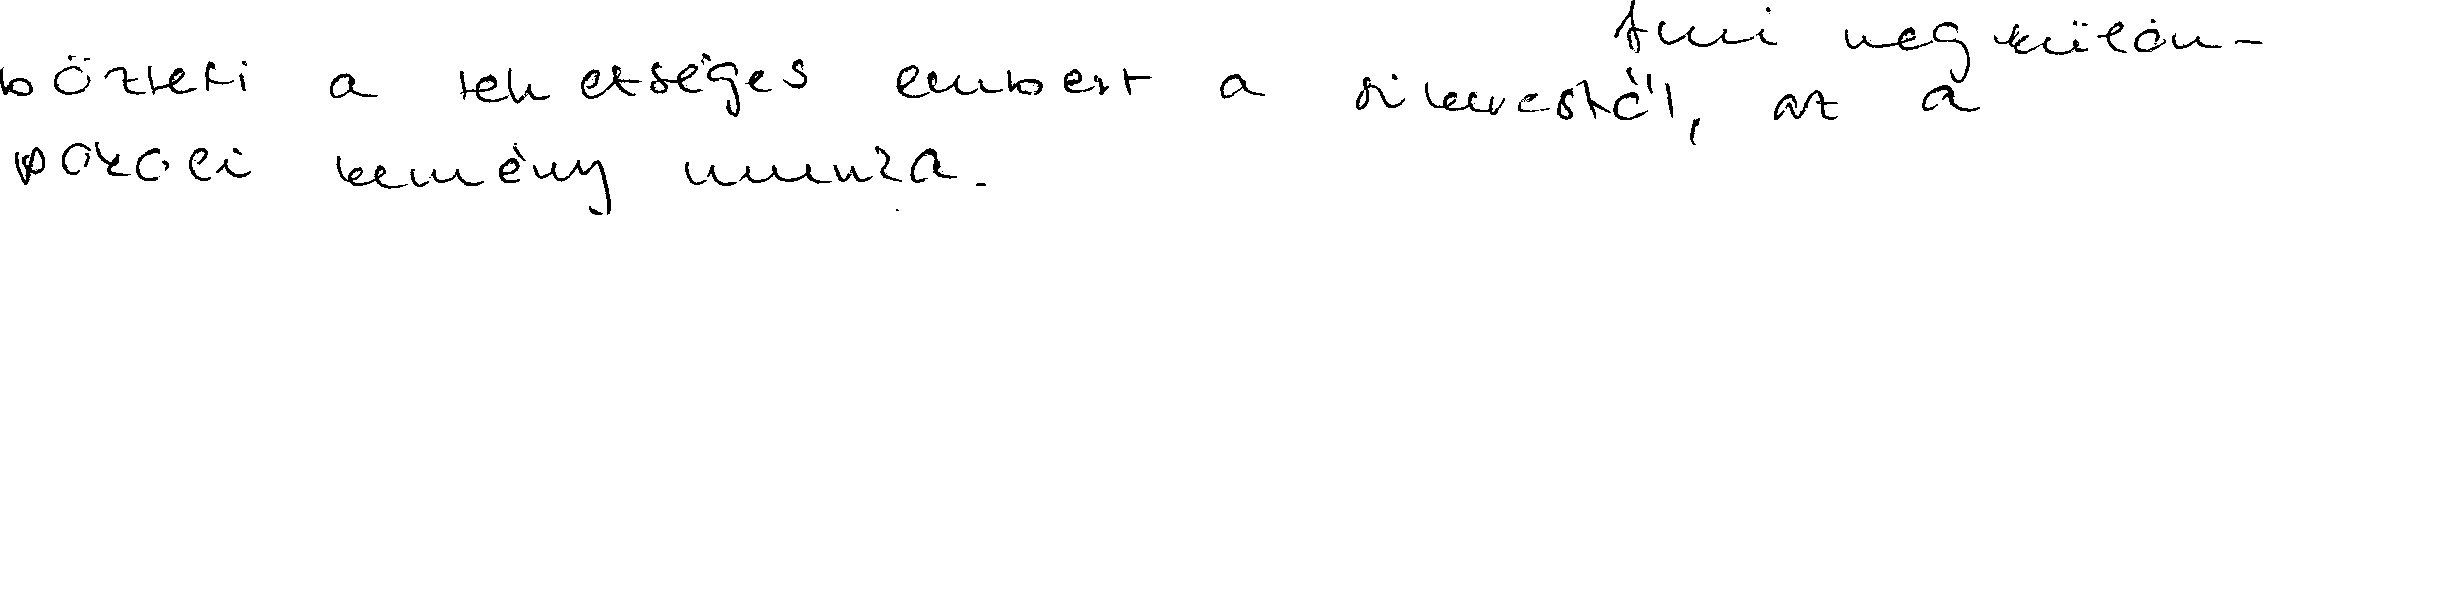 Ami megkülön-
bözteti a tehetséges embert a sikerestől, az a
pokoli kemény munka.